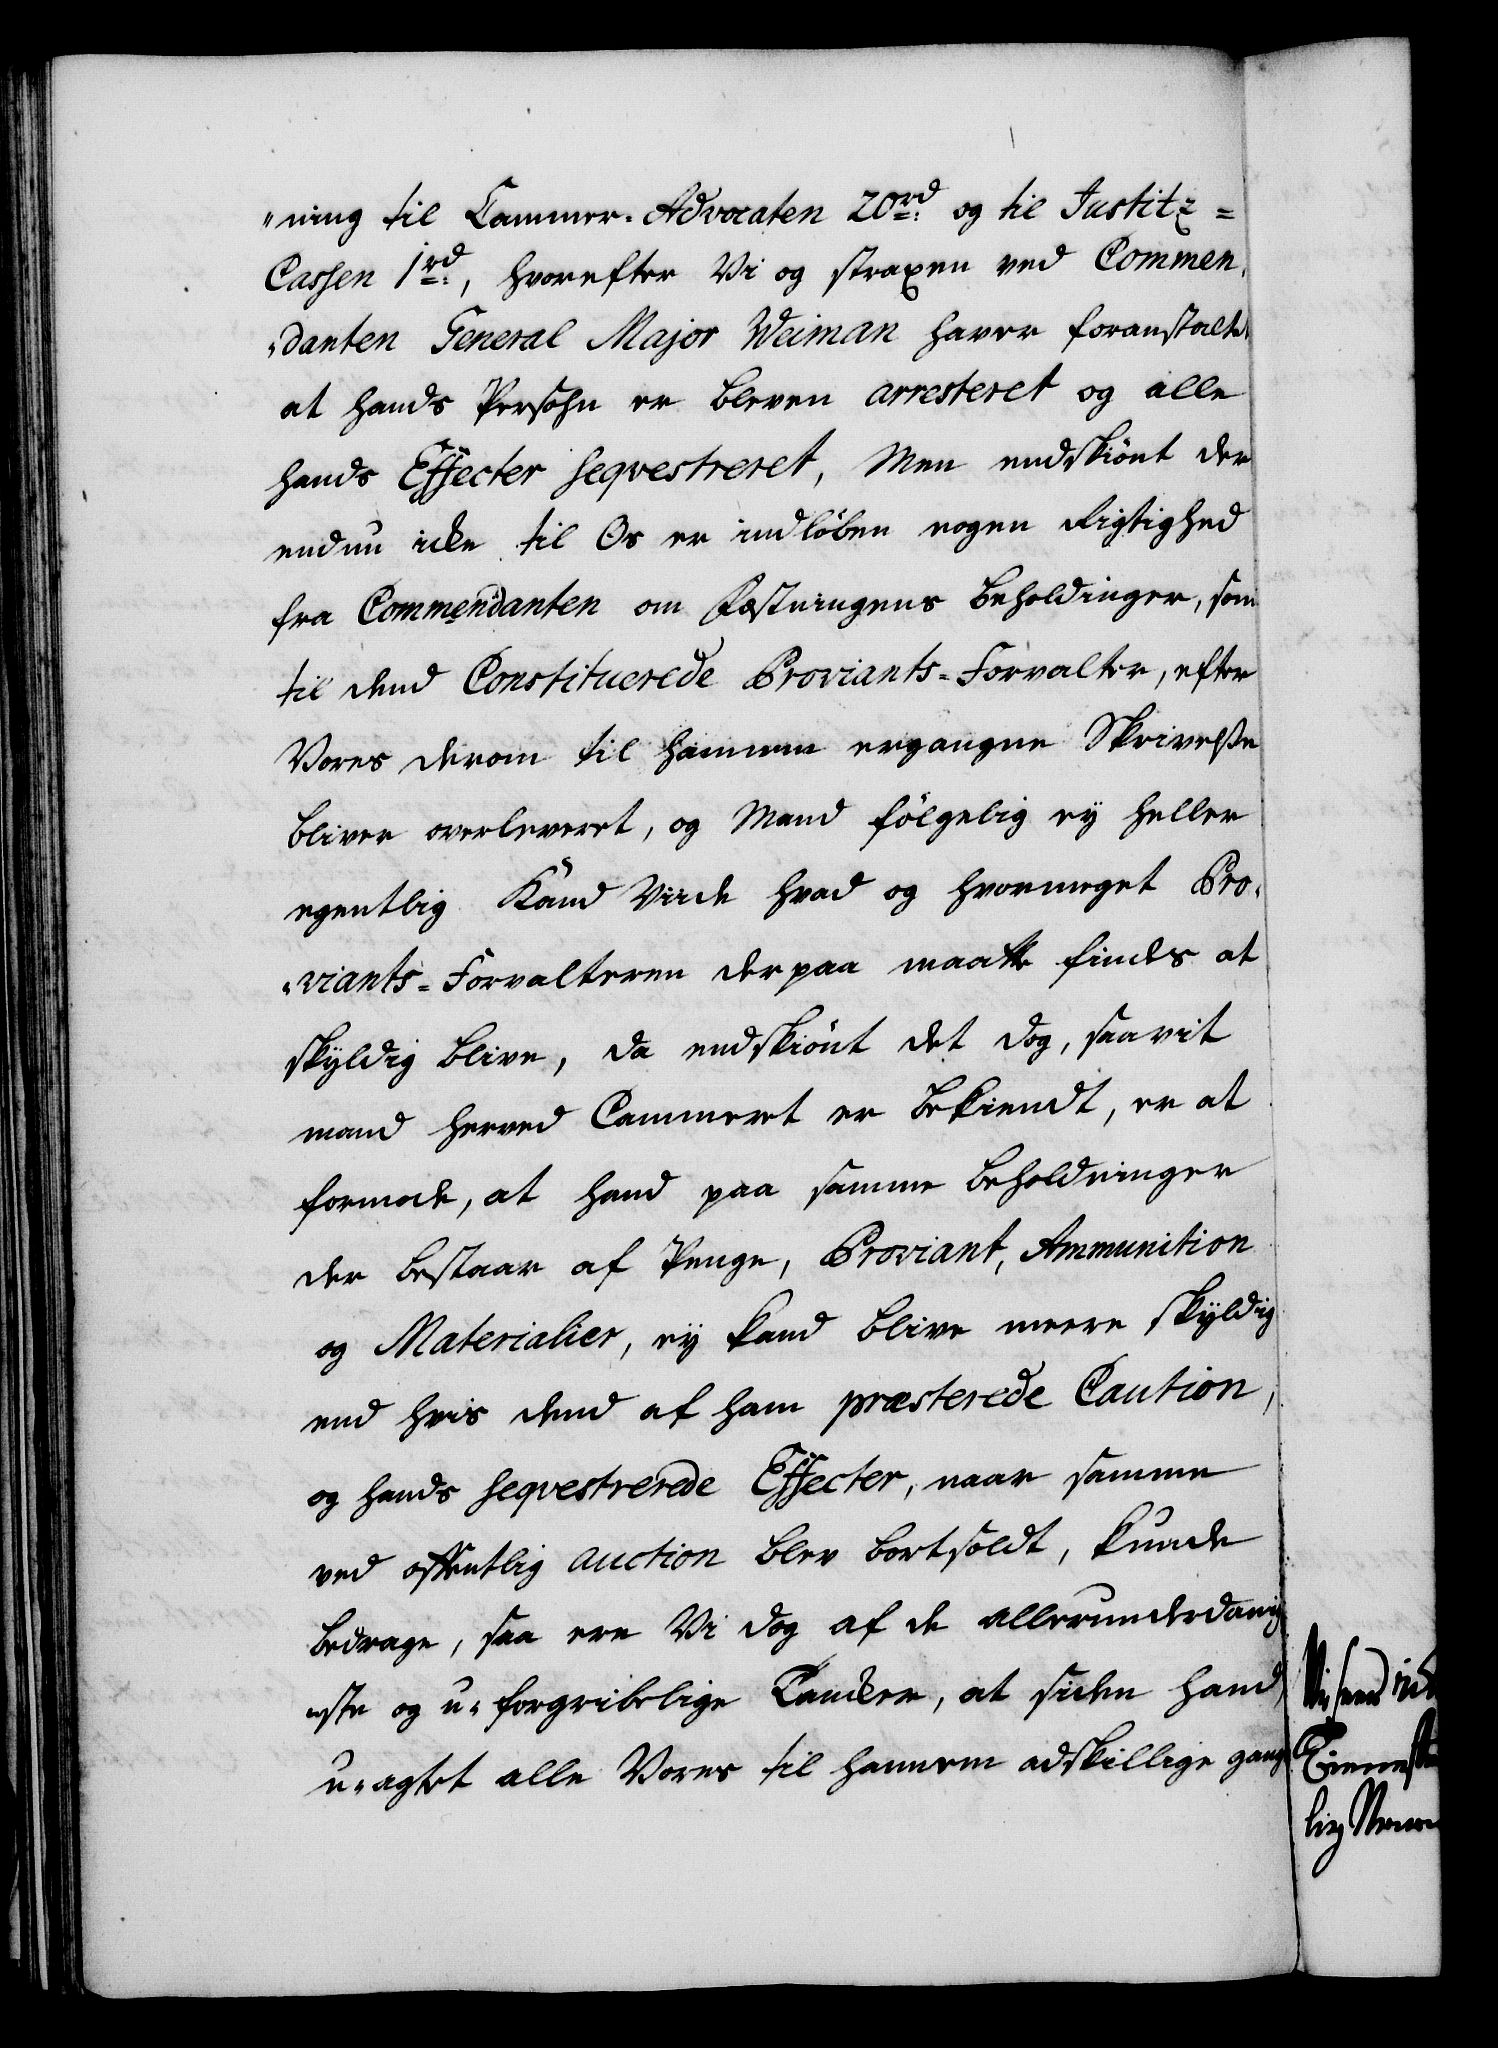 "ning til Cammer-Advocaten 20rd og til Justitz=
Cassen 1rd, hvorefter Vi og straxen ved Commen„
„danten General Major Weiman haver foranstaltet
at hands Persohn er bleven arresteret og alle
hands Effecter seqvestreret, Men endskiönt der
endnu icke til Os er indlöben nogen Rigtighed
fra Commendanten om Fæstningens Beholdinger, som
til dend Constituerede Proviants=Forvalter, efter
Vores derom til hannem ergangne Skrivelse
bliver overleveret, og Mand fölgelig ey heller
egentlig Kand Viide hvad og hvormeget Pro„
„viants=Forvalteren derpaa maatte findes at
skyldig blive, da endskiönt det dog, saavit
mand herved Cammeret er bekiendt, er at
formode, at hand paa samme Beholdninger
der bestaar af Penge, Proviant, Ammunition
og Materialier, ey kand blive meere skyldig
end hvis dend af ham præsterede Caution,
og hands seqvestrerede Effecter, naar samme
ved offentlig auction blev bortsoldt, kunde
bedrage, saa ere Vi dog af de allerunderdanig
„ste og u„forgribelige Tancker, at siden hand
u„agtet alle Vores til hannem adskillige gang